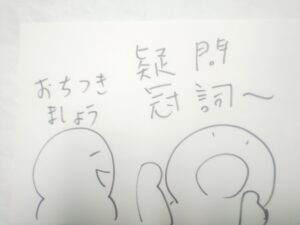 おちつき
ましょう
疑問
冠詞～